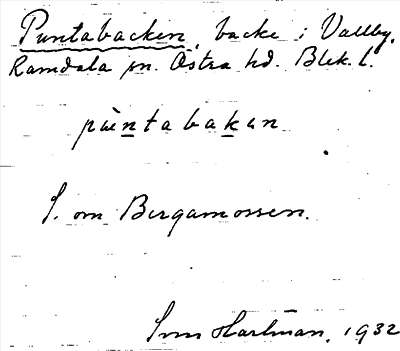 Puntabacken, backe i Vallby,
Ramdala sn. Östra hd. Blek. l.
pùntabakan
S. om Bergamossen.
Sven Hartman, 1932